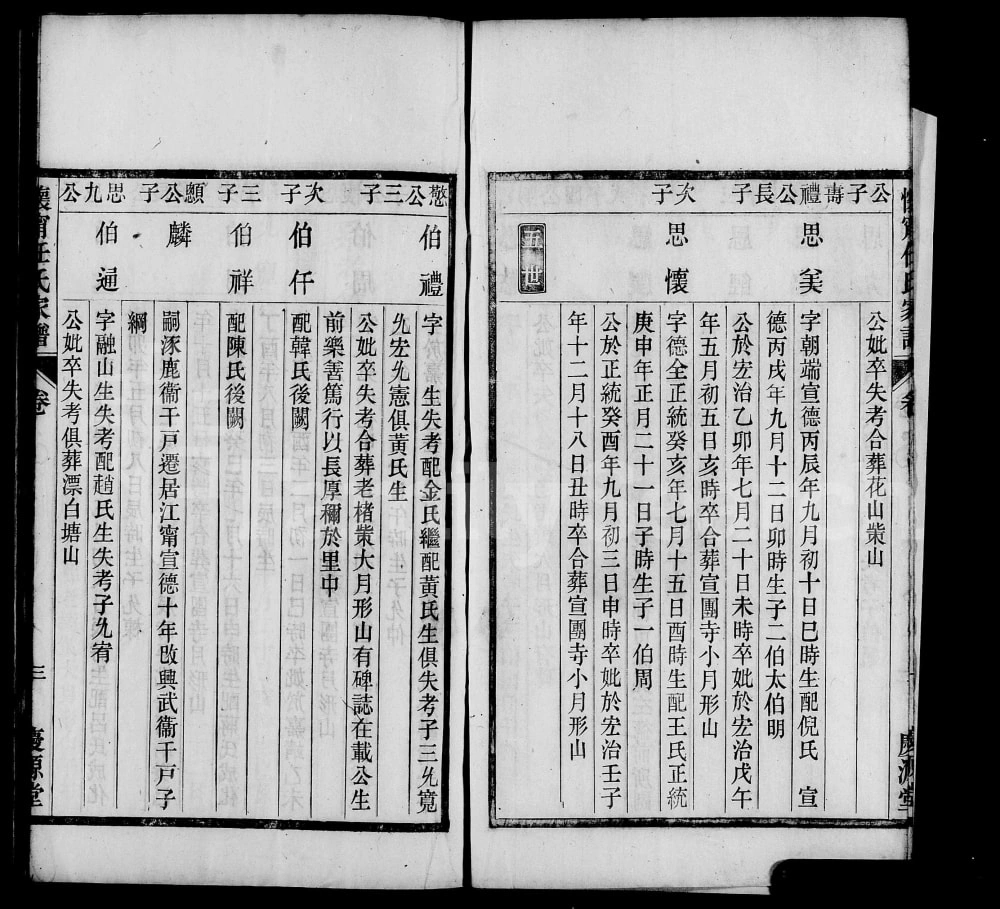 公妣卒失考合葬花山柴山
公子壽禮公長子
思美
字朝端宣德丙辰年九月初十日巳時生配倪氏 宣
德丙戌年九月十二日卯時生子二伯太伯明
公於宏治乙卯年七月二十日未時卒妣於宏治戊午
年五月初五日亥時卒合葬宣團寺小月形山
次子
思懷
字德全正統癸亥年七月十五日酉時生配王氏正統
庚申年正月二十一日子時生子一伯周
公於正統癸酉年九月初三日申時卒妣於宏治壬子
年十二月十八日丑時卒合葬宣團寺小月形山
五世
慜公三子
伯禮
字 生失考配金氏繼配黃氏生俱失考子三允寬
允宏允憲俱黃氏生
公妣卒失考合葬老楮柴大月形山有碑誌在載公生
前樂善篤行以長厚稱於里中
次子
伯仟
配韓氏後闕
三子
伯祥
配陳氏後闕
顯公子
麟
嗣涿鹿衞干戸遷居江甯宣德十年改興武衞干戸子
綱
思九公
伯通
字融山生失考配趙氏生失考子允宥
公妣卒失考俱葬漂白塘山
懷甯任氏家譜
卷
三
慶源堂